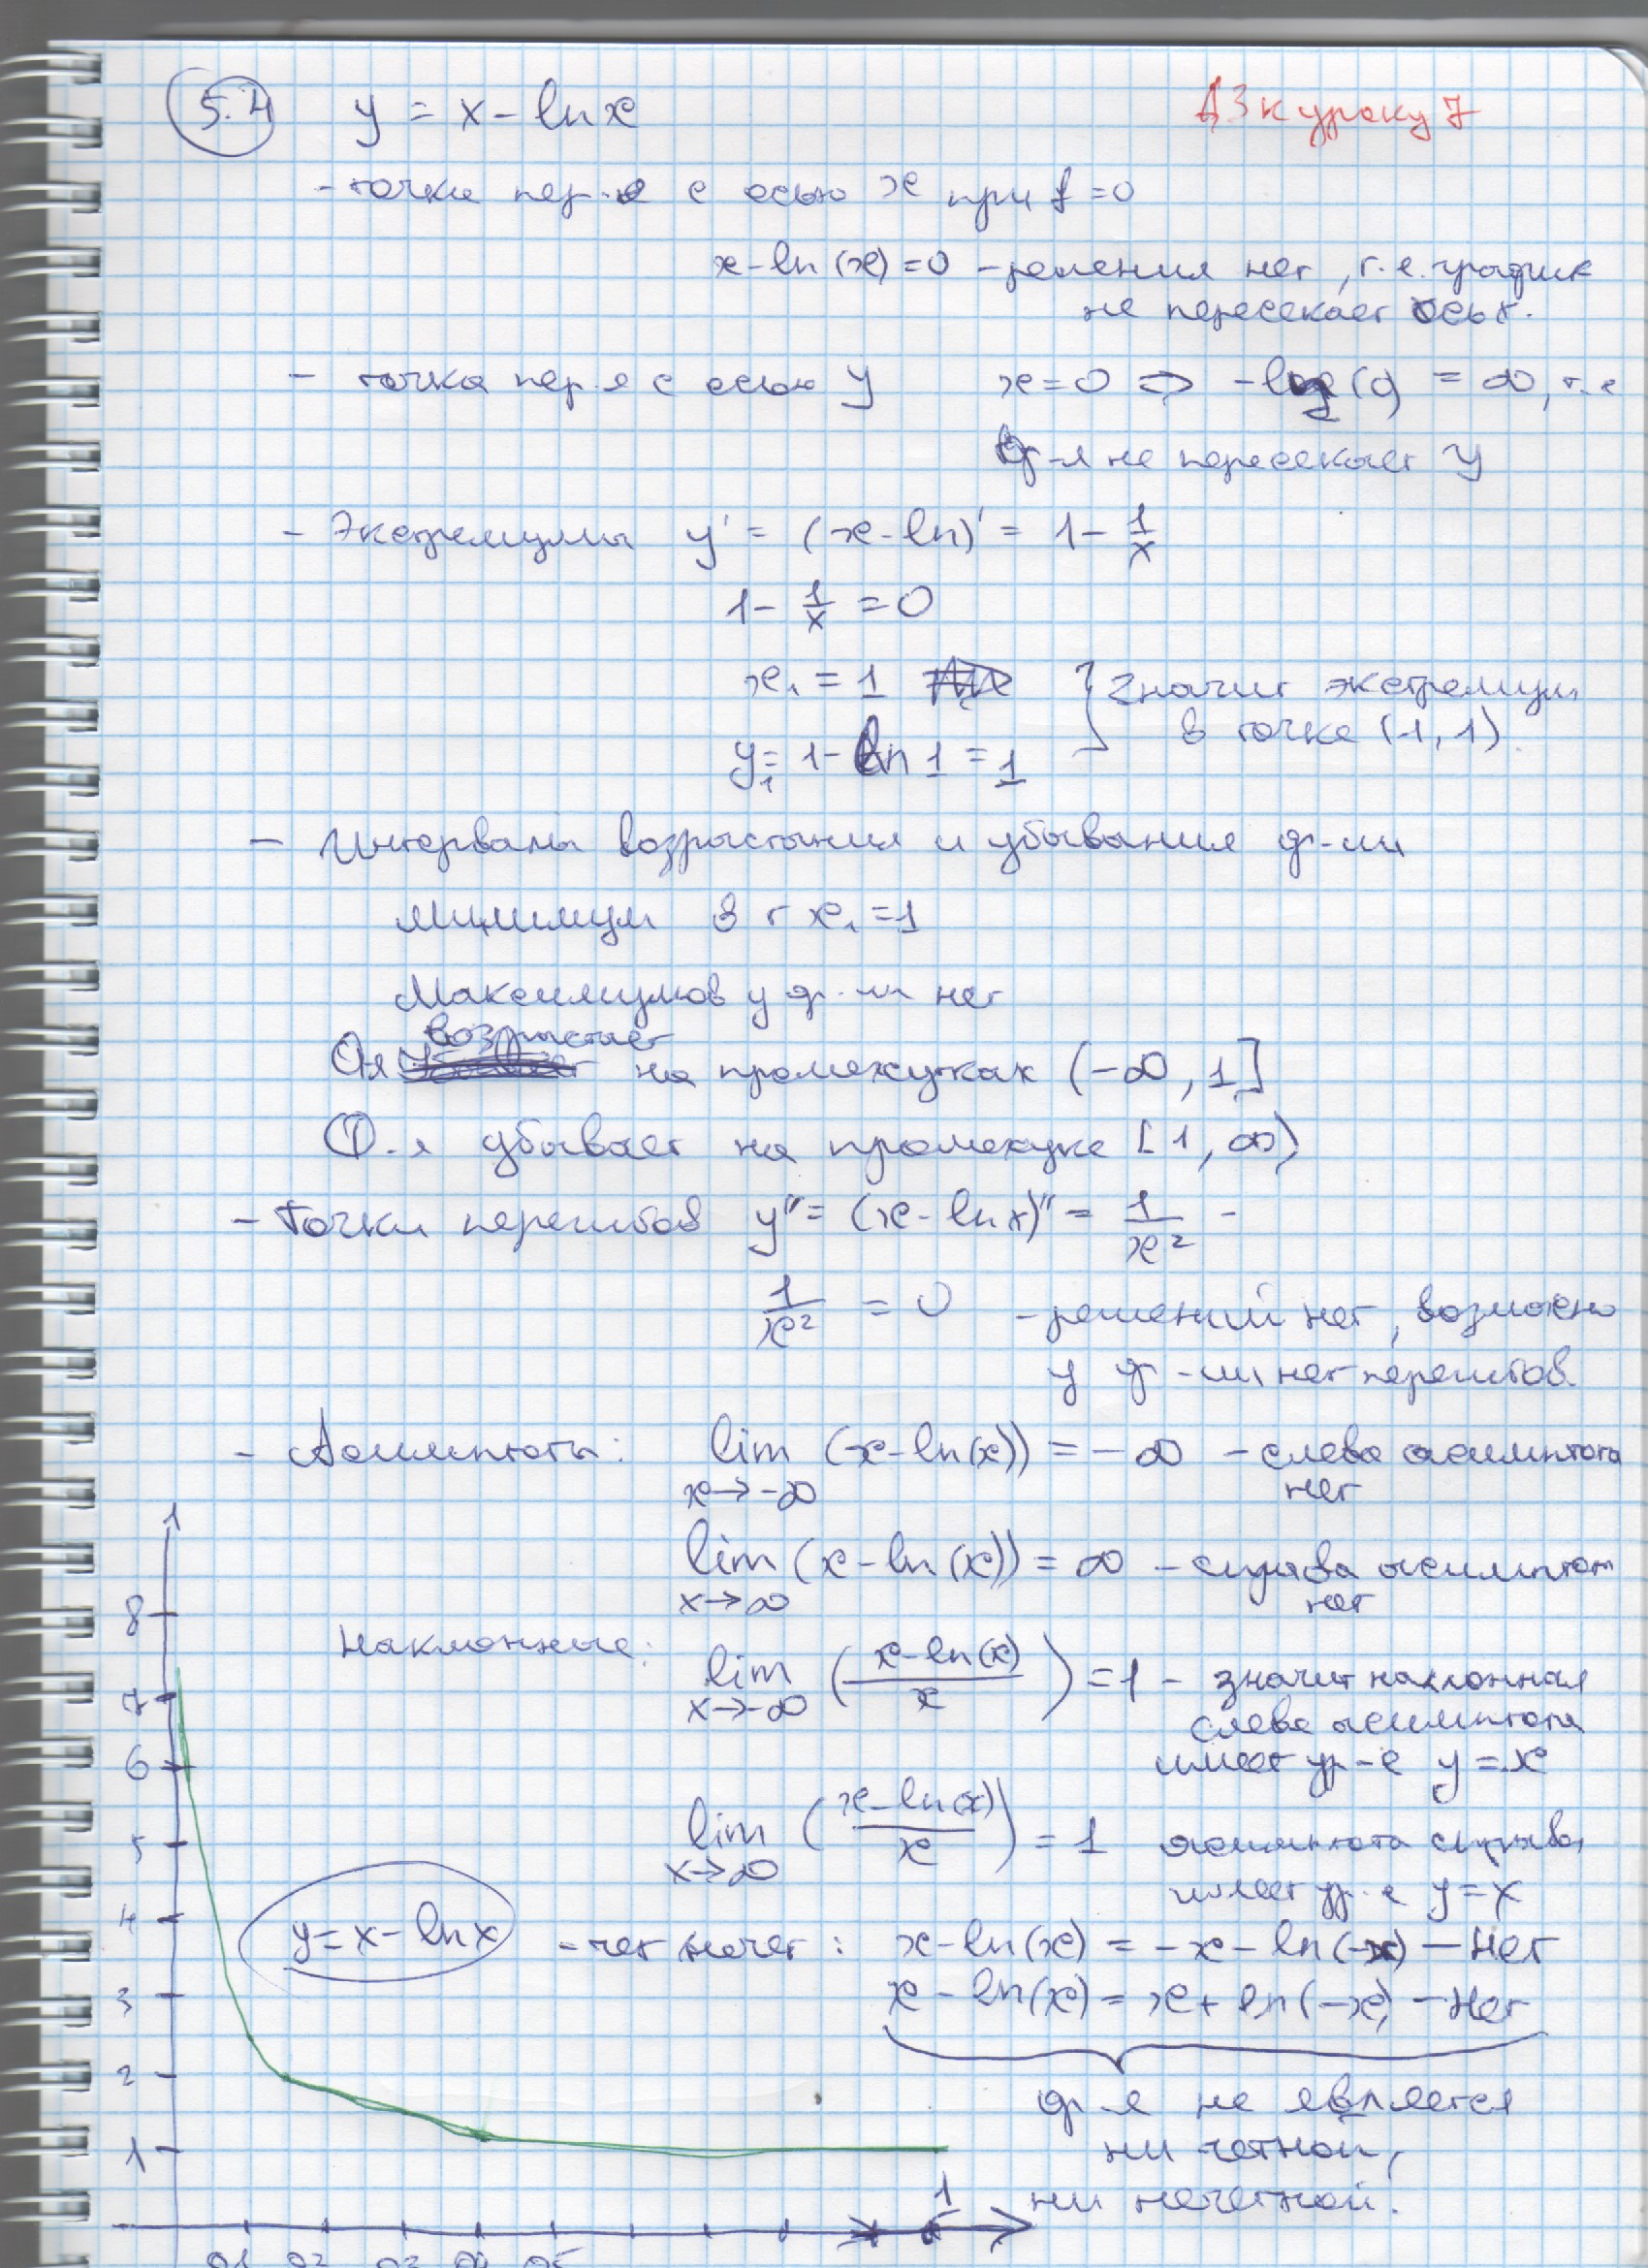 5.4 y = x - ln x
ДЗ к уроку 7
- точки пер-я с осью x при f = 0
x - ln(x) = 0 - решения нет, т.е. график
не пересекает ось x.
- точка пер-я с осью y x = 0 => -log(0) = ∞, т.е
ф-я не пересекает y
- Экстремумы y' = (x - ln)' = 1 - 1/x
1 - 1/x = 0
x₁ = 1 } Значит экстремум
y₁ = 1 - ln 1 = 1 в точке (1, 1).
- Интервалы возрастания и убывания ф-ии
Минимум в т x₁ = 1
Максимумов у ф-ии нет
возрастает
Ф-я на промежутках (-∞, 1]
Ф-я убывает на промежутке [1, ∞)
- Точки перегибов y'' = (x - ln x)'' = 1/x² -
1/x² = 0 - решений нет, возможно
у ф-ии нет перегибов.
- Асимптоты: lim (x - ln(x)) = -∞ - слева асимптота
x→-∞ нет
lim (x - ln(x)) = ∞ - справа асимптот
x→∞ нет
Наклонные: lim ((x - ln(x))/x) = 1 - значит наклонная
x→-∞ слева асимптота
имеет ур-е y = x
lim ((x - ln(x))/x) = 1 асимптота справа
x→∞ имеет ур-е y = x
- чет/нечет: x - ln(x) = -x - ln(-x) - Нет
x - ln(x) = x + ln(-x) - Нет
ф-я не является
ни четной,
ни нечетной.
y = x - ln x
8
7
6
5
4
3
2
1
1
0.1 0.2 0.3 0.4 0.5